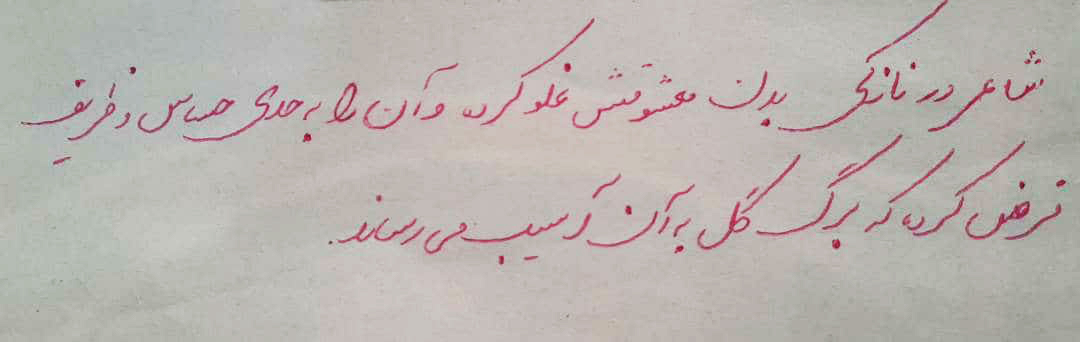 شاعر در نازکی بدن معشوقش غلو کرده و آن را به حدی حساس و ظریف
فرض کرده که برگ گل به آن آسیب می رساند.